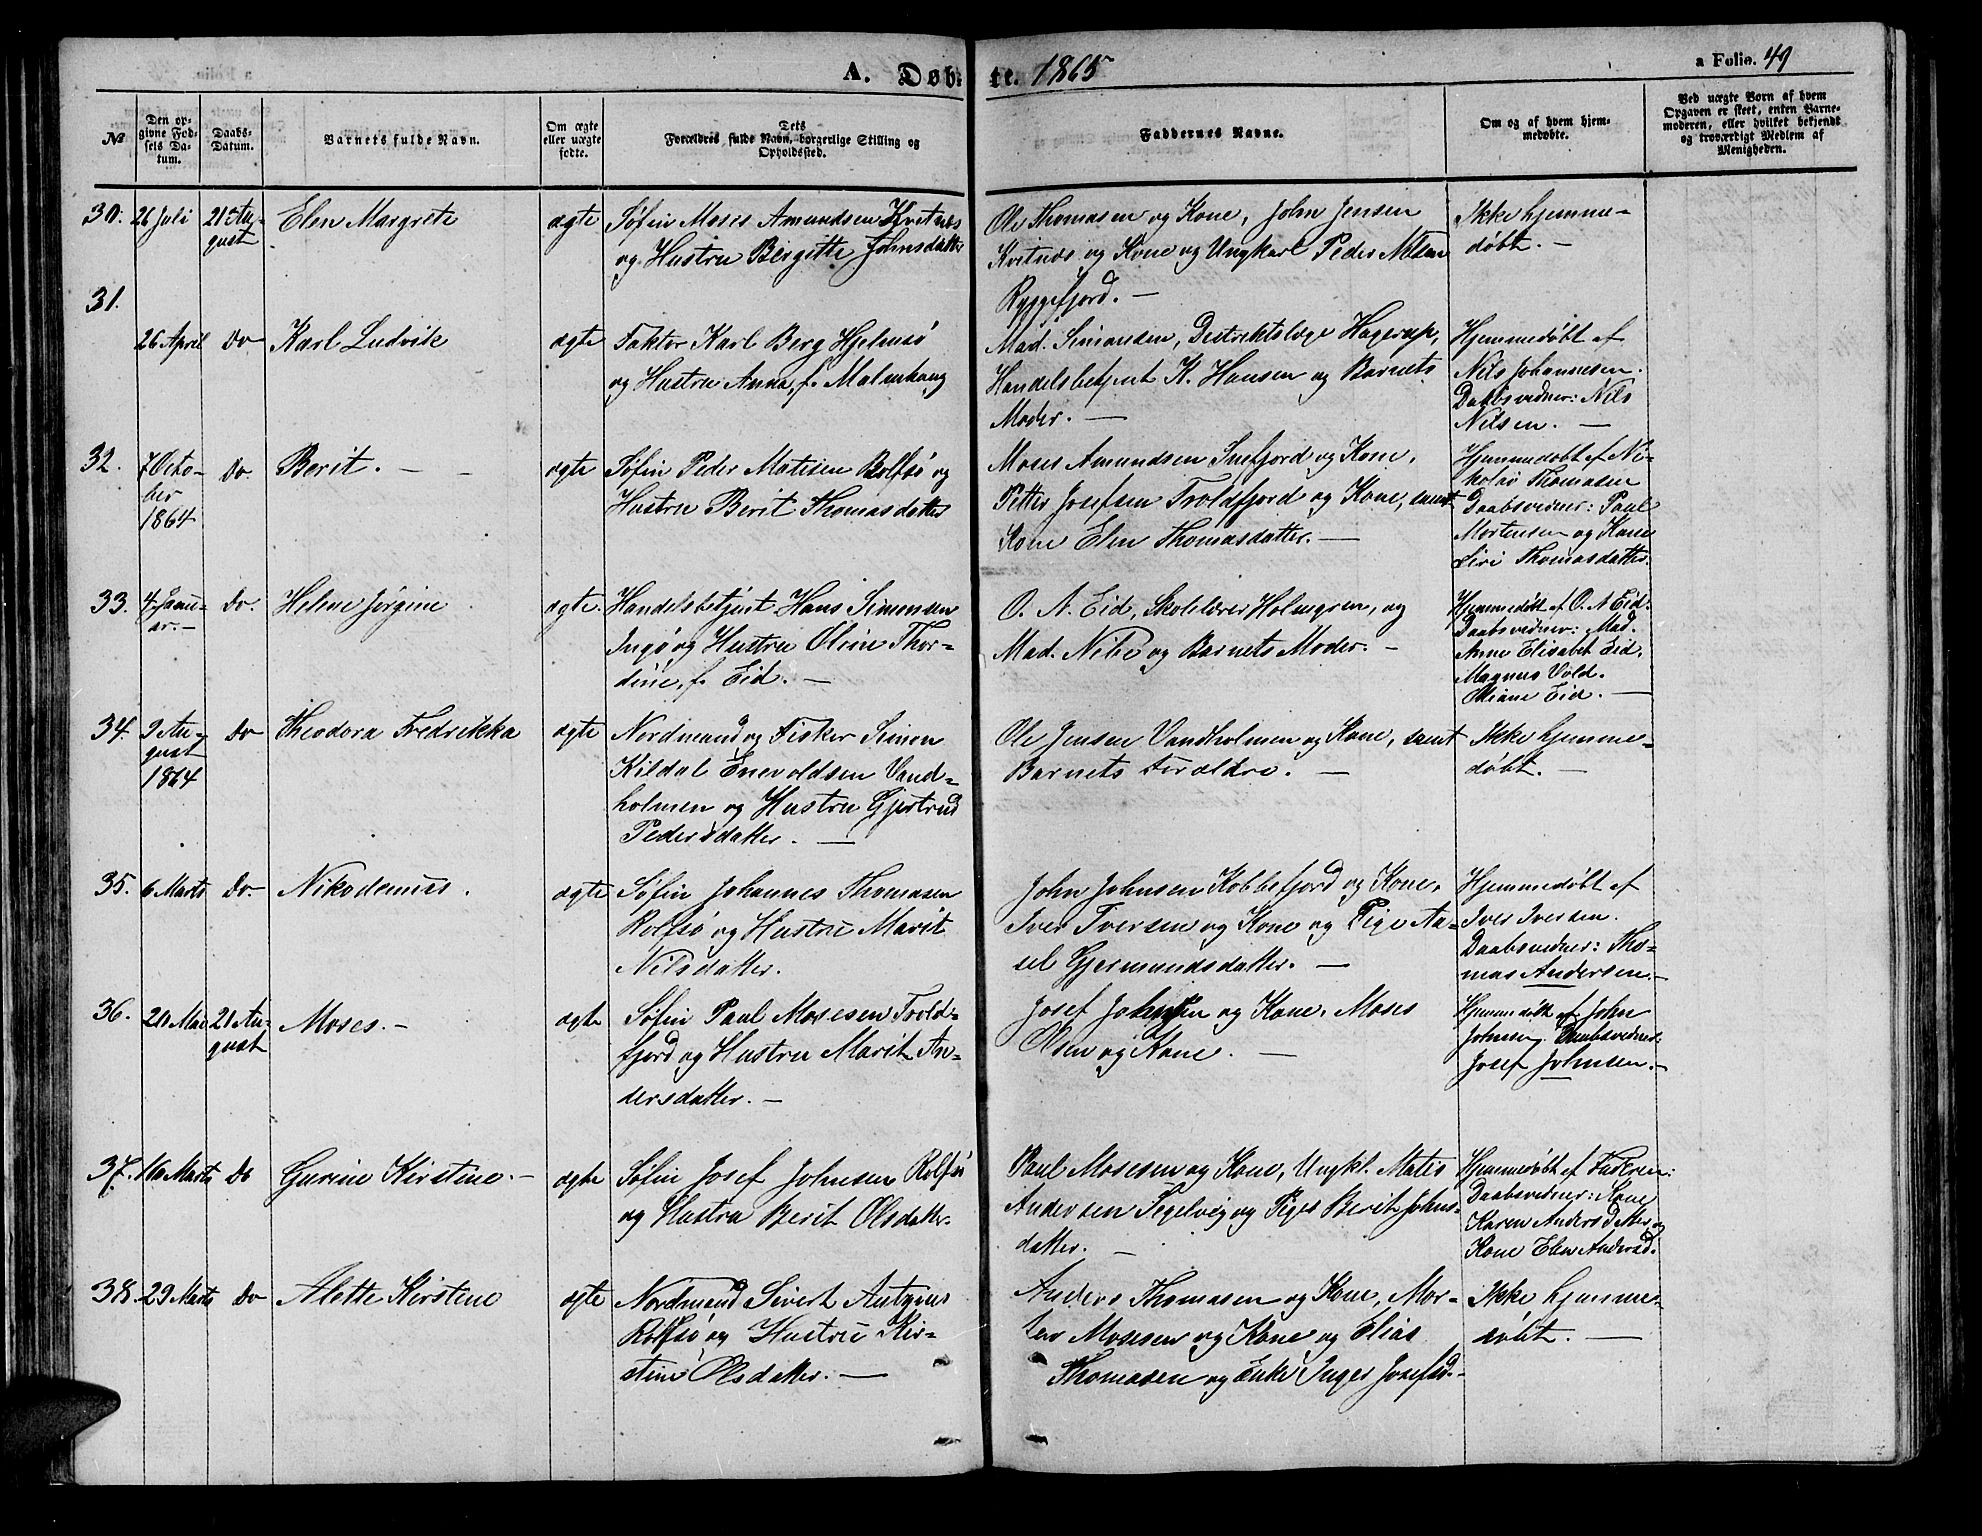 A. Døbte. 1865
a Folio. 49
№
Den opgivne Fødsels Datum.
Daabs-Datum.
Barnets fulde Navn.
Om ægte eller uægte fødte.
Dets Forældres fulde Navn, borgerlige Stilling og Opholdssted.
Faddernes Navne.
Om og af hvem hjemmedøbte.
Ved uægte Børn af hvem Opgaven er skeet, enten Barnemoderen, eller hvilket bekjendt og troværdigt Medlem af Menigheden.
30. 26 Juli 21 August Elen Margrete ægte
Søfin Moses Amundsen Kvitnæs
og Hustru Bergitte Johnsdatter
Ole Thomasen og Kone, John Jensen
Kvitnæs og Kone og Ungkarl Peder Nilsen
Ryggefjord. —
Ikke hjemme-
døbt. —
31. 26 April Do Karl Ludvik ægte
Faktor Karl Berg Hjelmsø
og Hustru Anna, f. Malmhaug
Mad. Simonsen, Destriktslæge Hagerup,
Handelsbetjent K. Hansen og Barnets
Moder. —
Hjemmedøbt af
Nils Johannesen.
Daabsvidner: Nils
Nilsen. —
32. 7 October 1864 Do. Berit. — ægte
Søfin Peder Matisen Rolfsø og
Hustru Berit Thomasdatter
Moses Amundsen Snefjord og Kone,
Petter Josefsen Troldfjord og Kone, samt
Kone Elen Thomasdatter. —
Hjemmedøbt af Ni-
kolai Thomasen
Daabsvidner: Paul
Mortensen og Kone
Siri Thomasdatter.
33. 4 Januar. — Do. Helene Jørgine ægte.
Handelsbetjent Hans Simonsen
Ingø og Hustru Oline Thor-
dine, f. Eid. —
O. N. Eid, Skolelærer Holmgren, og
Mad. Nibe og Barnets Moder. —
Hjemmedøbt af O. N Eid.
Daabsvidner: Mad.
Anne Elisabet Eid.
Magnus Vold.
Eid. —
34. 9 August 1864 Do Theodora Fredrikka ægte
Nordmand og Fisker Simon
Kildal Enevoldsen Vand-
holmen og Hustru Gjertrud
Pedersdatter. —
Ole Jensen Vandholmen og Kone, samt
Barnets Forældre. —
Ikke hjemme-
døbt. —
35. 6 Marts Do Nikodemus. ægte
Søfin Johannes Thomasen
Rolfsø og Hustru Marit
Nilsdatter.
John Johnsen Kobbefjord og Kone,
Iver Iversen og Kone og Pige Aa-
sel Gjermundsdatter. —
Hjemmedøbt af
Iver Iversen.
Daabsvidner: Tho-
mas Andersen. —
36. 20 Mai 21 August Moses. — ægte
Søfin Paul Mosesen Trold-
fjord og Hustru Marit An-
dersdatter. —
Josef Johnsen og Kone, Moses
Olsen og Kone. —
Hjemmedøbt af John
Johnsen. Daabsvidner:
Josef Johnsen. —
37. 16 Marts Do Gurine Kirstine. — ægte
Søfin Josef Johnsen Rolfsø
og Hustru Berit Olsdatter.
Paul Mosesen og Kone, Ungkl. Matis
Andersen Segelvig og Piges Berit Johns-
datter. —
Hjemmedøbt af Faderen:
Daabsvidner: Kone
Karen Andersdatter og
Kone Elen Andersd.
38. 29 Marts Do Alette Kirstene ægte
Nordmand Sivert Antonius
Rolfsø og Hustru Kir-
stine Olsdatter. —
Anders Thomasen og Kone, Mor-
ten Mosesen og Kone og Elias
Thomasen og Enke Inger Josefsd. —
Ikke hjemme-
døbt. —